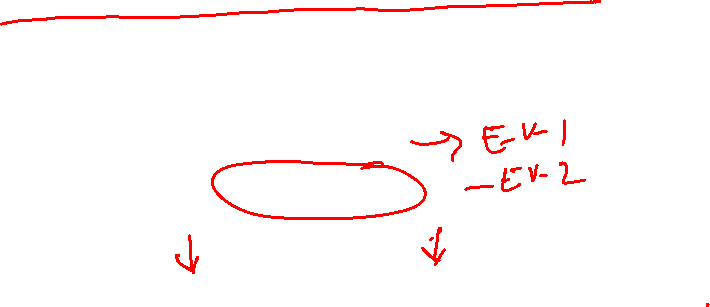 → EV-1
- EV-2